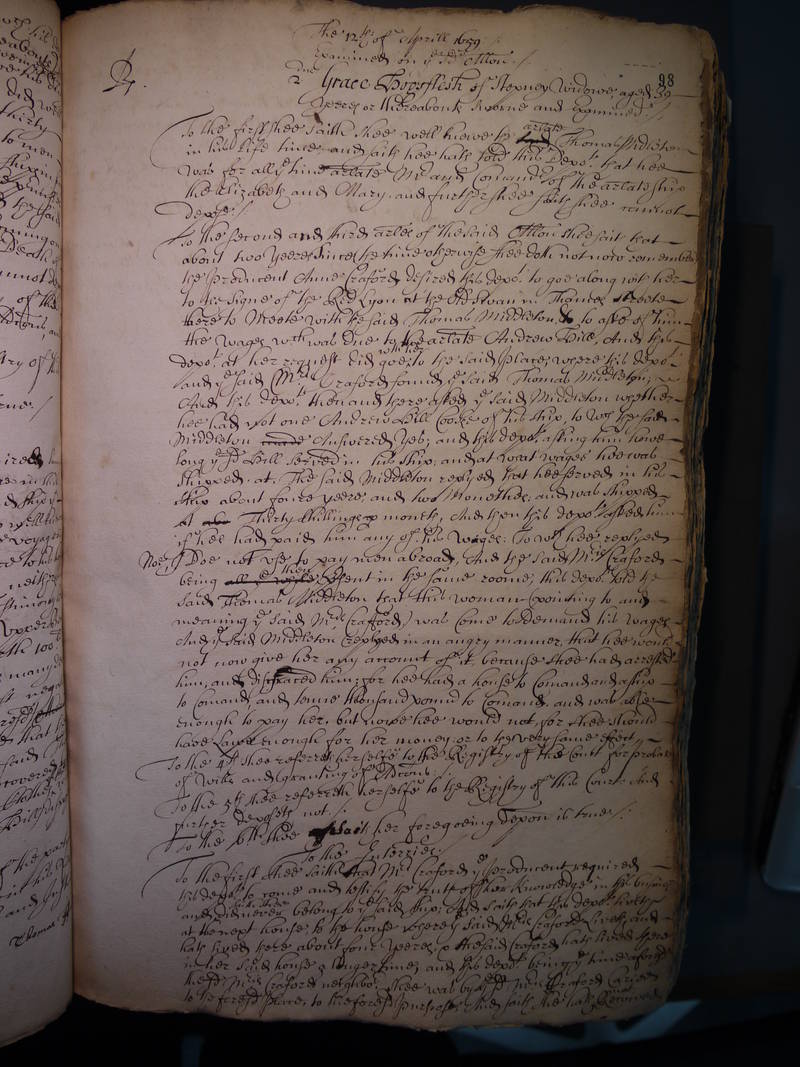 The 12th of Aprill 1659 /
Examined on ye sd Allon. /
98
Rp.
2 Grace Horsflesh of Stepney Widowe aged 39
yeeres or thereabouts sworne and examined. /
To the first shee saith shee well knewe the arlate Thomas Midleton
in his life time and saith hee hath told this depot. that hee
was for all ye time arlate Mr and Comander of the arlate shipp
the Elizabeth and Mary. and further shee saith shee cannot
depose /
To the second and third arles of the said Allon shee saith that
about two yeeres since the time otherwise shee doth not now remember
the producent Anne Craford desired this depot. to goe along with her
to the signe of the Red Lyon at the old Swan in Thames streete
there to Meete with the said Thomas Middleton, to aske of him
the wages wch was due to the arlate Andrew Bill, And this
depot. at her request did goe with her to the said place; where this depot.
and ye said Mrs Craford found ye said Thomas Midleton,
And this depot. then and there asked ye said Midleton whether
hee had not one Andrew Bill Cooke of his ship, to wch the said
Middleton Answered yes; and this depot. asking him howe
long ye sd Bill served in his ship, and at what wages hee was
shipped at. The said Middleton replyed that hee served in his
ship about foure yeeres and two Monethes, and was shipped
at Thirty shillings p month, And then this depot. asked him
if hee had paid him any of his wages: To wch hee replyed
Noe, I doe not use to pay men abroad, And the said Mrs Craford
being then present in the same roome, this depot. told the
said Thomas Middleton that this woman (pointing to and
meaning ye said Mrs Crafford) was come to demand his wages
And ye said Midleton replyed in an angry manner, that hee would
not now give her any account of it, because shee had arrested
him, and disgraced him; for hee had a house to Comand and a ship
to comand and some thousand pound to Comand, and was able
enough to pay her, but nowe hee would not, for shee should
have Lawe enough for her money, or to the very same effect
To the 4th shee referreth herselfe to the Registry of this Court for probate
of wills and granting of Adcons. /
To the 5th shee referreth herselfe to the Registry of this Court And
further deposeth not /
To the 6th shee saith her foregoeing depon is true /
To the Interries.
To the first shee saith that Mrs Craford ye producent required
this depot. to come and testify the truth of her knowledge in this busines
and did never belong to ye said ship, And saith that this depot. liveth
at the next house to the house where ye said Mrs Craford liveth, and
hath lived there about four yeeres, & the said Craford hath lived there
in her said house a longer time, and this depot. being ye time aforesd
the sd Mrs Craford neighbor, shee was by ye sd Mrs Craford Caried
to the foresd place, to the foresd purpose, And saith she hath